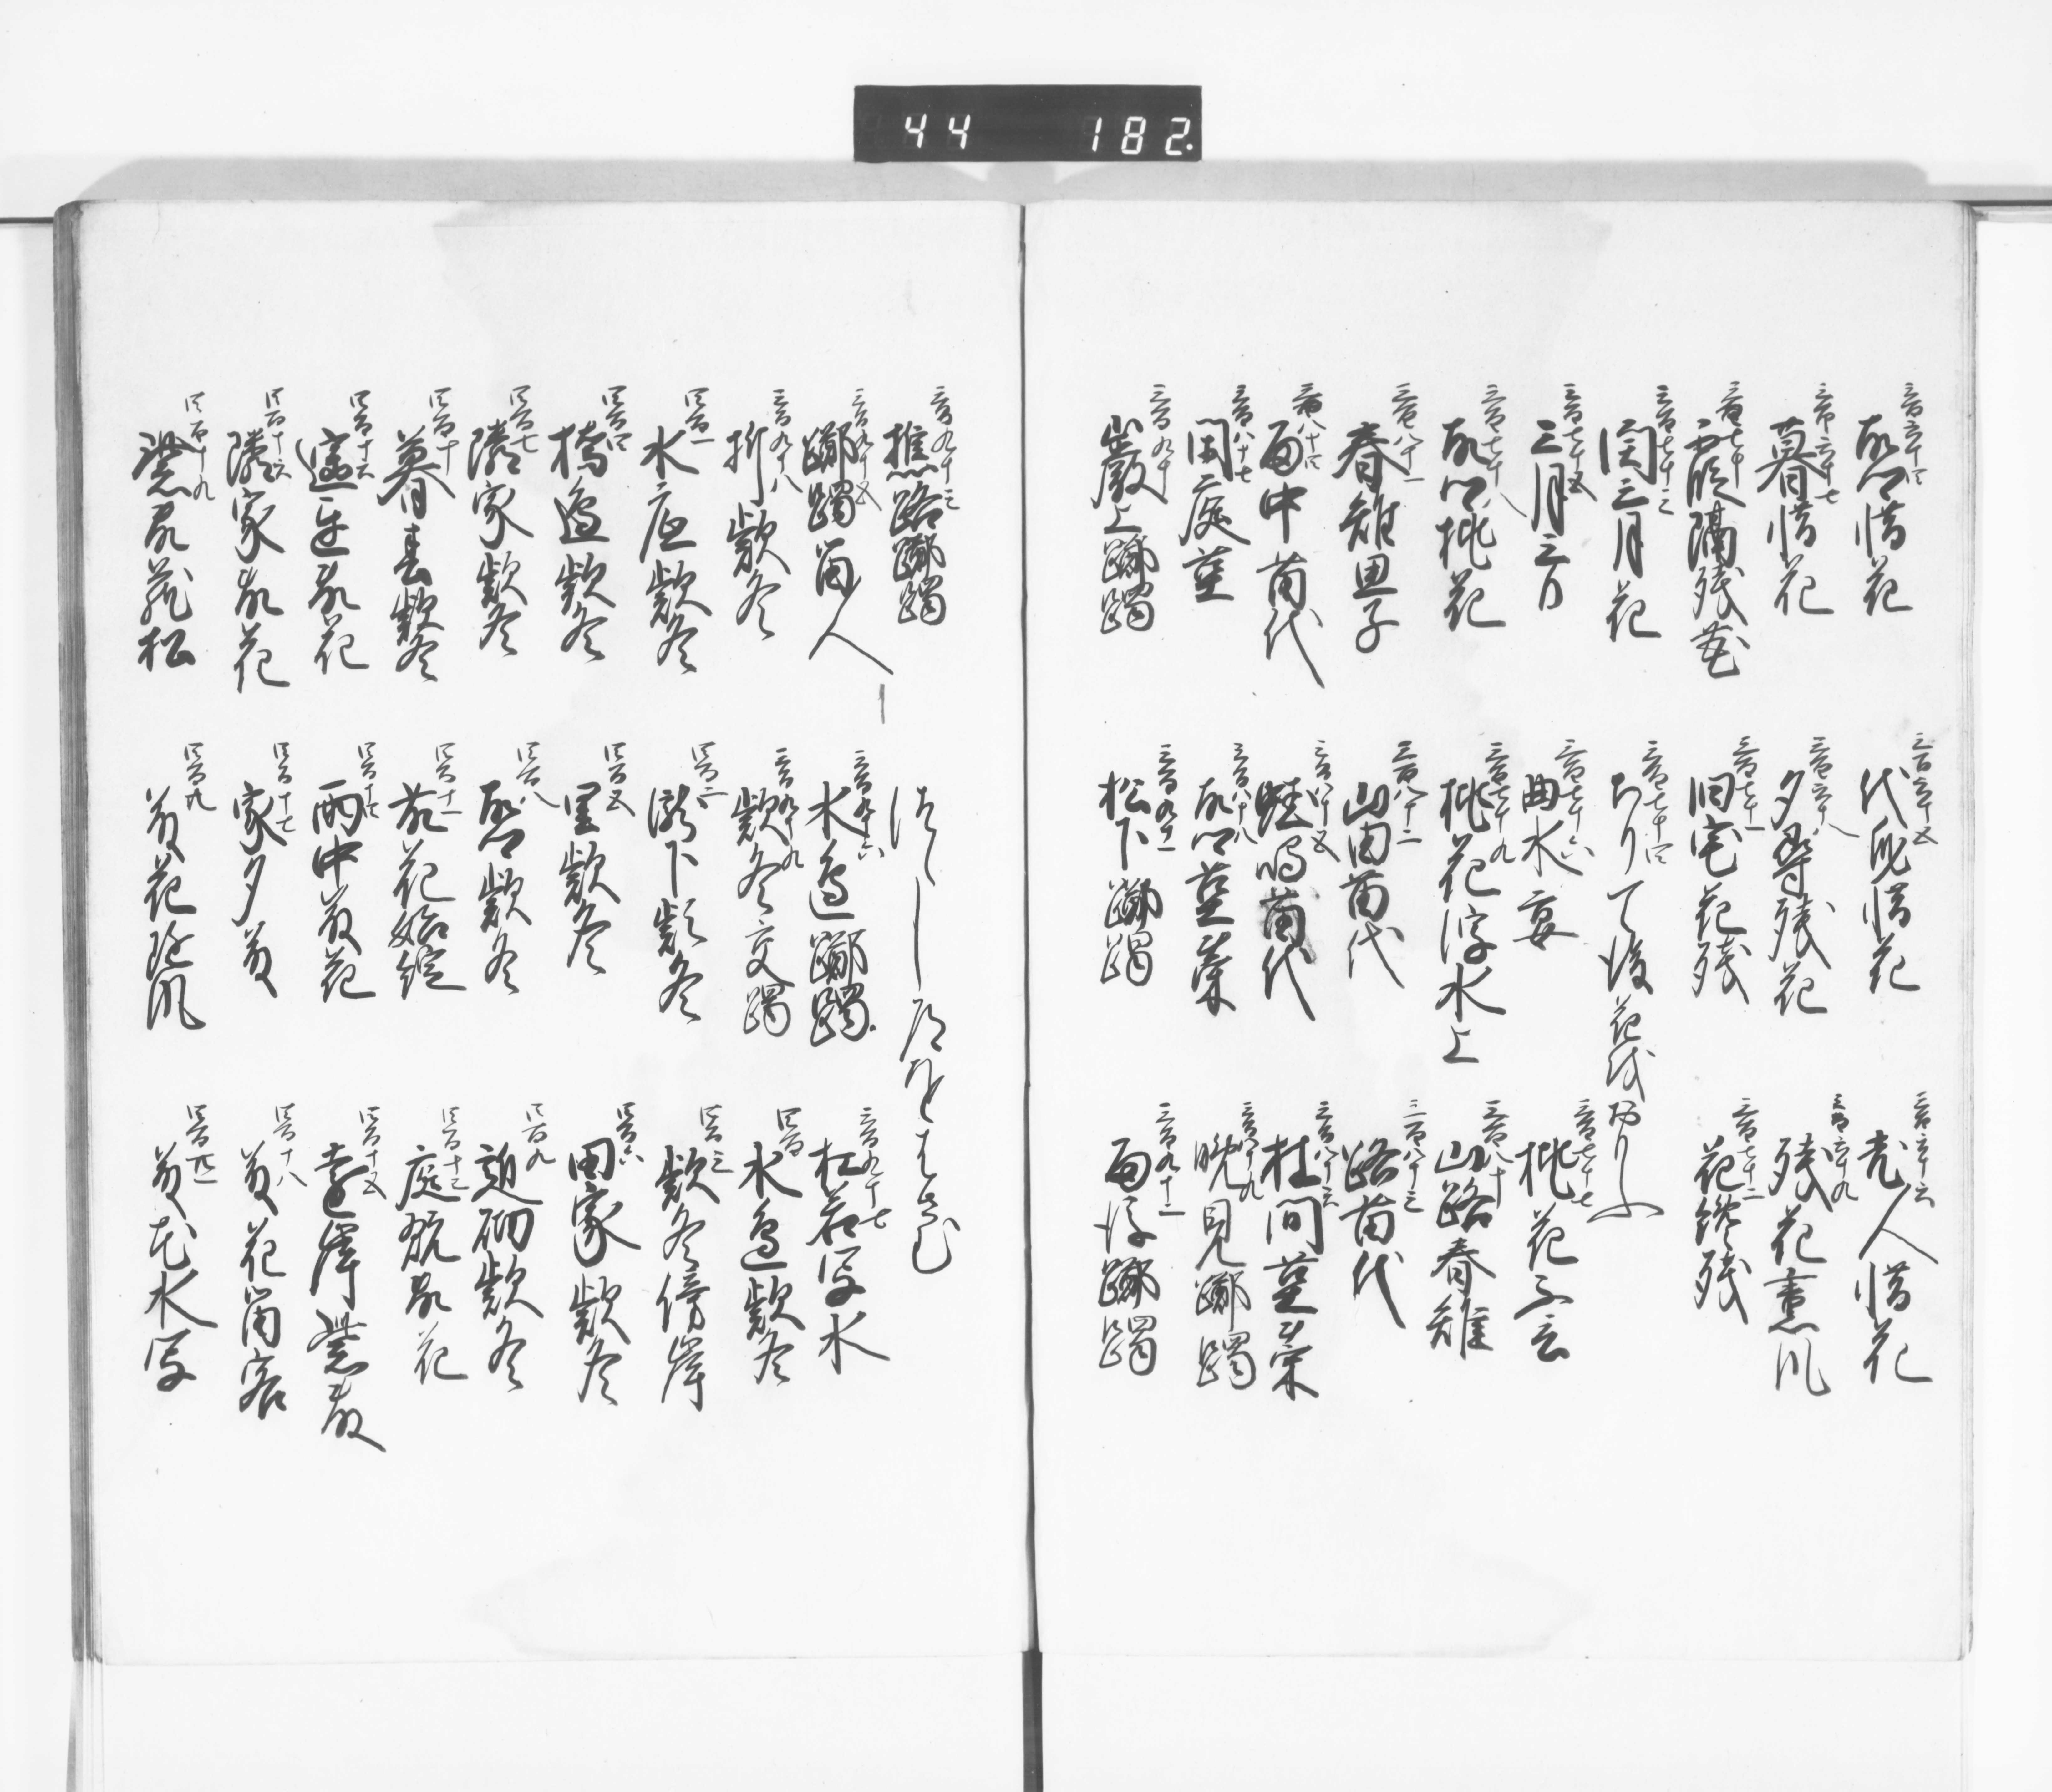 三百六十四
故郷惜花
三百六十五
惜花
三百六十六
老人惜花
三百六十七
暮惜花
三百六十八
夕尋残花
三百六十九
残花薫風
三百七十
霞隔残花
三百七十一
旧宅花残
三百七十二
花纔残
三百七十三
閏三月花
三百七十四
ちりて後花をおもふ
三百七十五
三月三日
三百七十六
曲水宴
三百七十七
桃花不言
三百七十八
故郷桃花
三百七十九
桃花浮水上
三百八十
山路春雉
三百八十一
春雉思子
三百八十二
山田苗代
三百八十三
路苗代
三百八十四
雨中苗代
三百八十五
蛙鳴苗代
三百八十六
杜間菫菜
三百八十七
閑庭菫
三百八十八
故郷菫菜
三百八十九
晩見躑躅
三百九十
巌上躑躅
三百九十一
松下躑躅
三百九十二
雨後躑躅
三百九十三
樵路躑躅
三百九十五
躑躅留人
三百九十六
水辺躑躅
三百九十七
杜若写水
三百九十八
折款冬
三百九十九
款冬交躅
四百
水辺款冬
四百一
水底款冬
四百二
瀧下款冬
四百三
款冬傍岸
四百四
橋辺款冬
四百五
里款冬
四百六
田家款冬
四百七
隣家款冬
四百八
故郷款冬
四百九
砌款冬
四百十
暮春款冬
四百十一
藤花始綻
四百十二
庭藤花
藤花
四百十四
雨中藤花
四百十五
岸紫藤
四百十六
隣家藤花
四百十七
家夕藤
四百十八
藤花留客
四百十九
紫藤蔵松
藤花随風
藤花水写
44 182